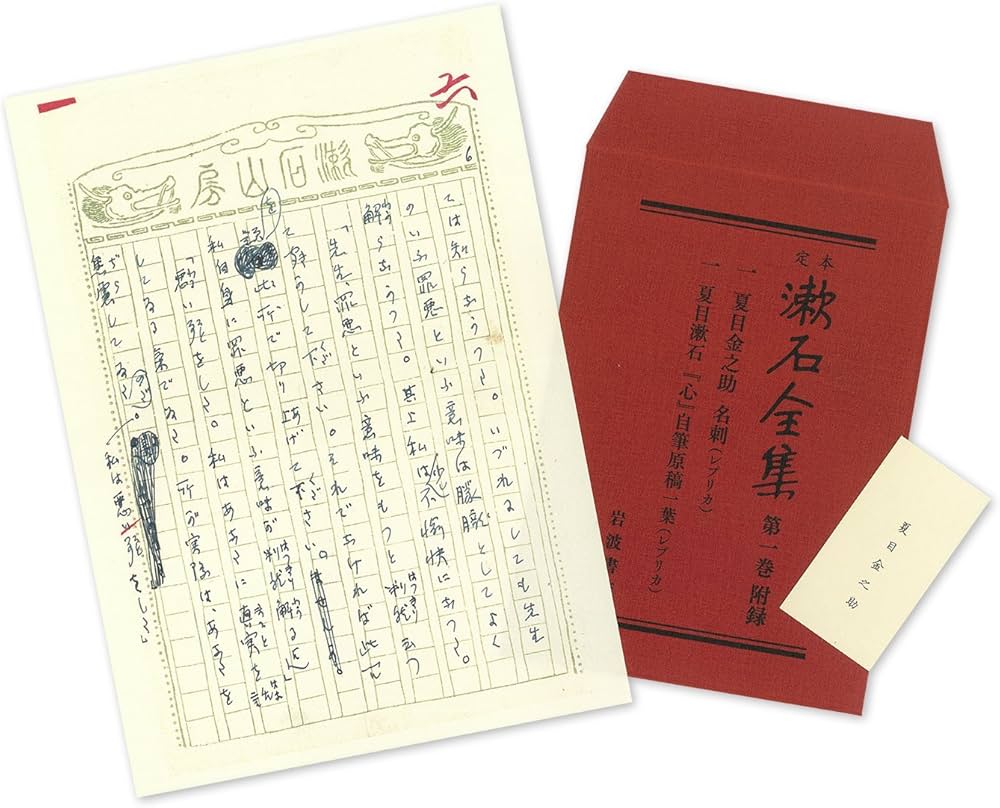 漱石山房
6
ては知らなかつた。いづれにしても先生
のいふ罪悪といふ意味は朦朧としてよく
解らなかつた。其上私は少し不愉快になつた。
「先生、罪悪といふ意味をもつと判然云つ
て聞かして下さい。それでなければ此問題
を此所で切り上げて下さい。
私自身に罪悪といふ意味が判然解る迄」
「悪い事をした。私はあなたに真実を話
してゐる気でゐた。所が実際は、あなたを
焦慮してゐたのだ。私は悪い事をした」
定本
漱石全集 第一巻 附録
一 夏目金之助 名刺(レプリカ)
一 夏目漱石『心』自筆原稿一葉(レプリカ)
岩波書
夏目金之助